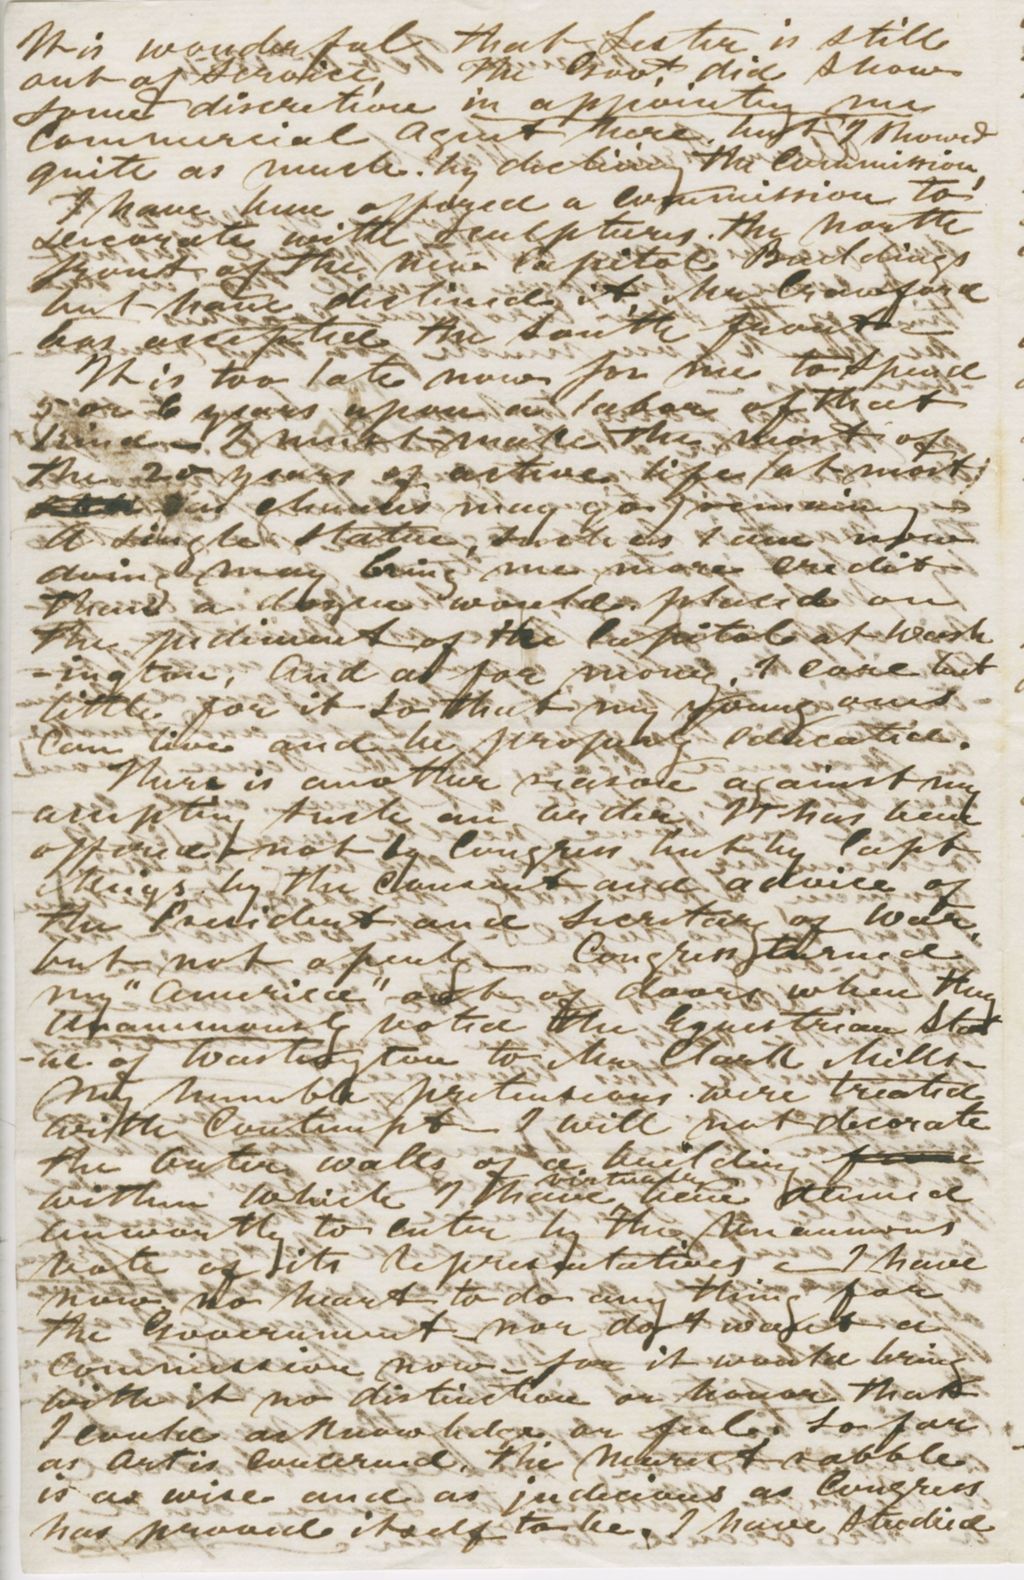 It is wonderful that Lester is still
out of service, The Govt. did show
some discretion in appointing me
Commercial Agent here, but I showed
quite as much by declining the Commission,
I have been offered a commission to
decorate with sculptures the North
front of the new Capitol Buildings
but have declined it, Mr Crawford
has accepted the South front —
It is too late now for me to spend
5 or 6 years upon a labor of that
kind — I must make the most of
the 20 years of active life (at most;
as chances may go) remaining —
A single statue, such as I am now
doing may bring me more credit
than a dozen would placed on
the pediment of the Capitol at Wash
-ington, And as for money, I care but
little for it so that my young ones
can live and be properly educated.
There is another reason against my
accepting such an order. It has been
offered not by Congress but by Capt
Meigs by the consent and advice of
the President and Secretary of War,
but not openly — Congress turned
my "America" out of doors when they
unanimously voted the Equestrian Stat
-ue of Washington to Mr Clark Mills —
My humble pretensions were treated
with Contempt — I will not decorate
the outer walls of a building
within which I have virtually been deemed
unworthy to enter by the unanimous
vote of its representatives — I have
now no heart to do any thing for
the Government nor do I want a
commission now — for it would bring
with it no distinction or honor that
I could acknowledge or feel. So far
as Art is concerned, the merest rabble
is as wise and as judicious as Congress
has proved itself to be. I have studied